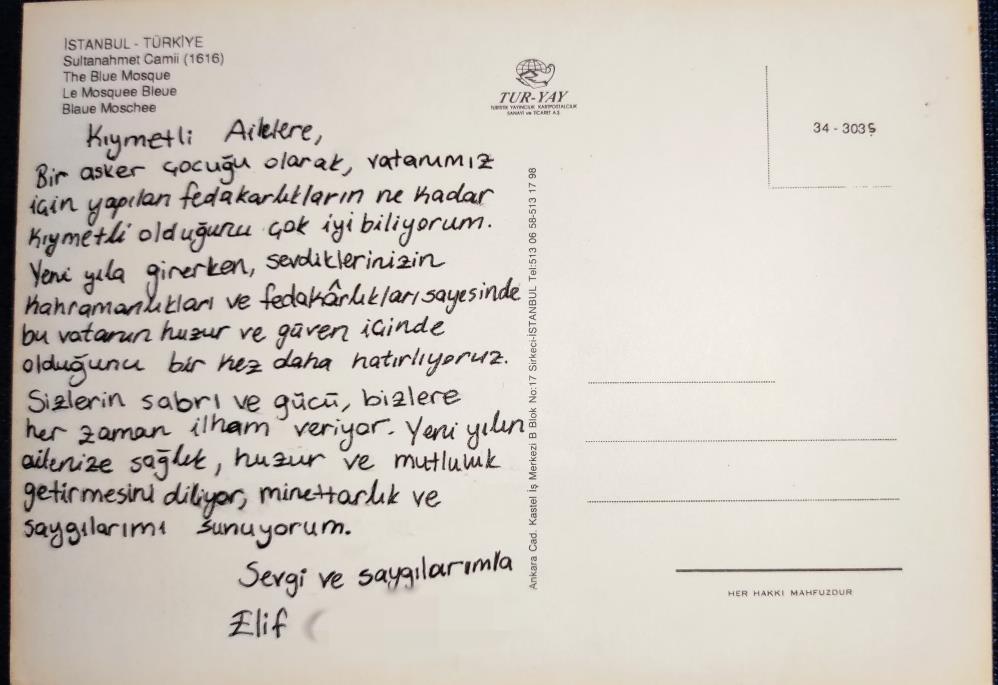 İSTANBUL - TÜRKİYE
Sultanahmet Camii (1616)
The Blue Mosque
Le Mosquee Bleue
Blaue Moschee
Kıymetli Ailelere,
Bir asker çocuğu olarak, vatanımız
için yapılan fedakarlıkların ne kadar
kıymetli olduğunu çok iyi biliyorum.
Yeni yıla girerken, sevdiklerinizin
kahramanlıkları ve fedakârlıkları sayesinde
bu vatanın huzur ve güven içinde
olduğunu bir kez daha hatırlıyoruz.
Sizlerin sabrı ve gücü, bizlere
her zaman ilham veriyor. Yeni yılın
ailenize sağlık, huzur ve mutluluk
getirmesini diliyor, minettarlık ve
saygılarımı sunuyorum.
Sevgi ve saygılarımla
Elif
TUR-YAY
TURİSTİK YAYINCILIK KARTPOSTALCILIK
SANAYİ ve TİCARET A.Ş.
Ankara Cad. Kastel İş Merkezi B Blok No:17 Sirkeci-İSTANBUL Tel:513 06 58-513 17 98
34 - 303S
HER HAKKI MAHFUZDUR